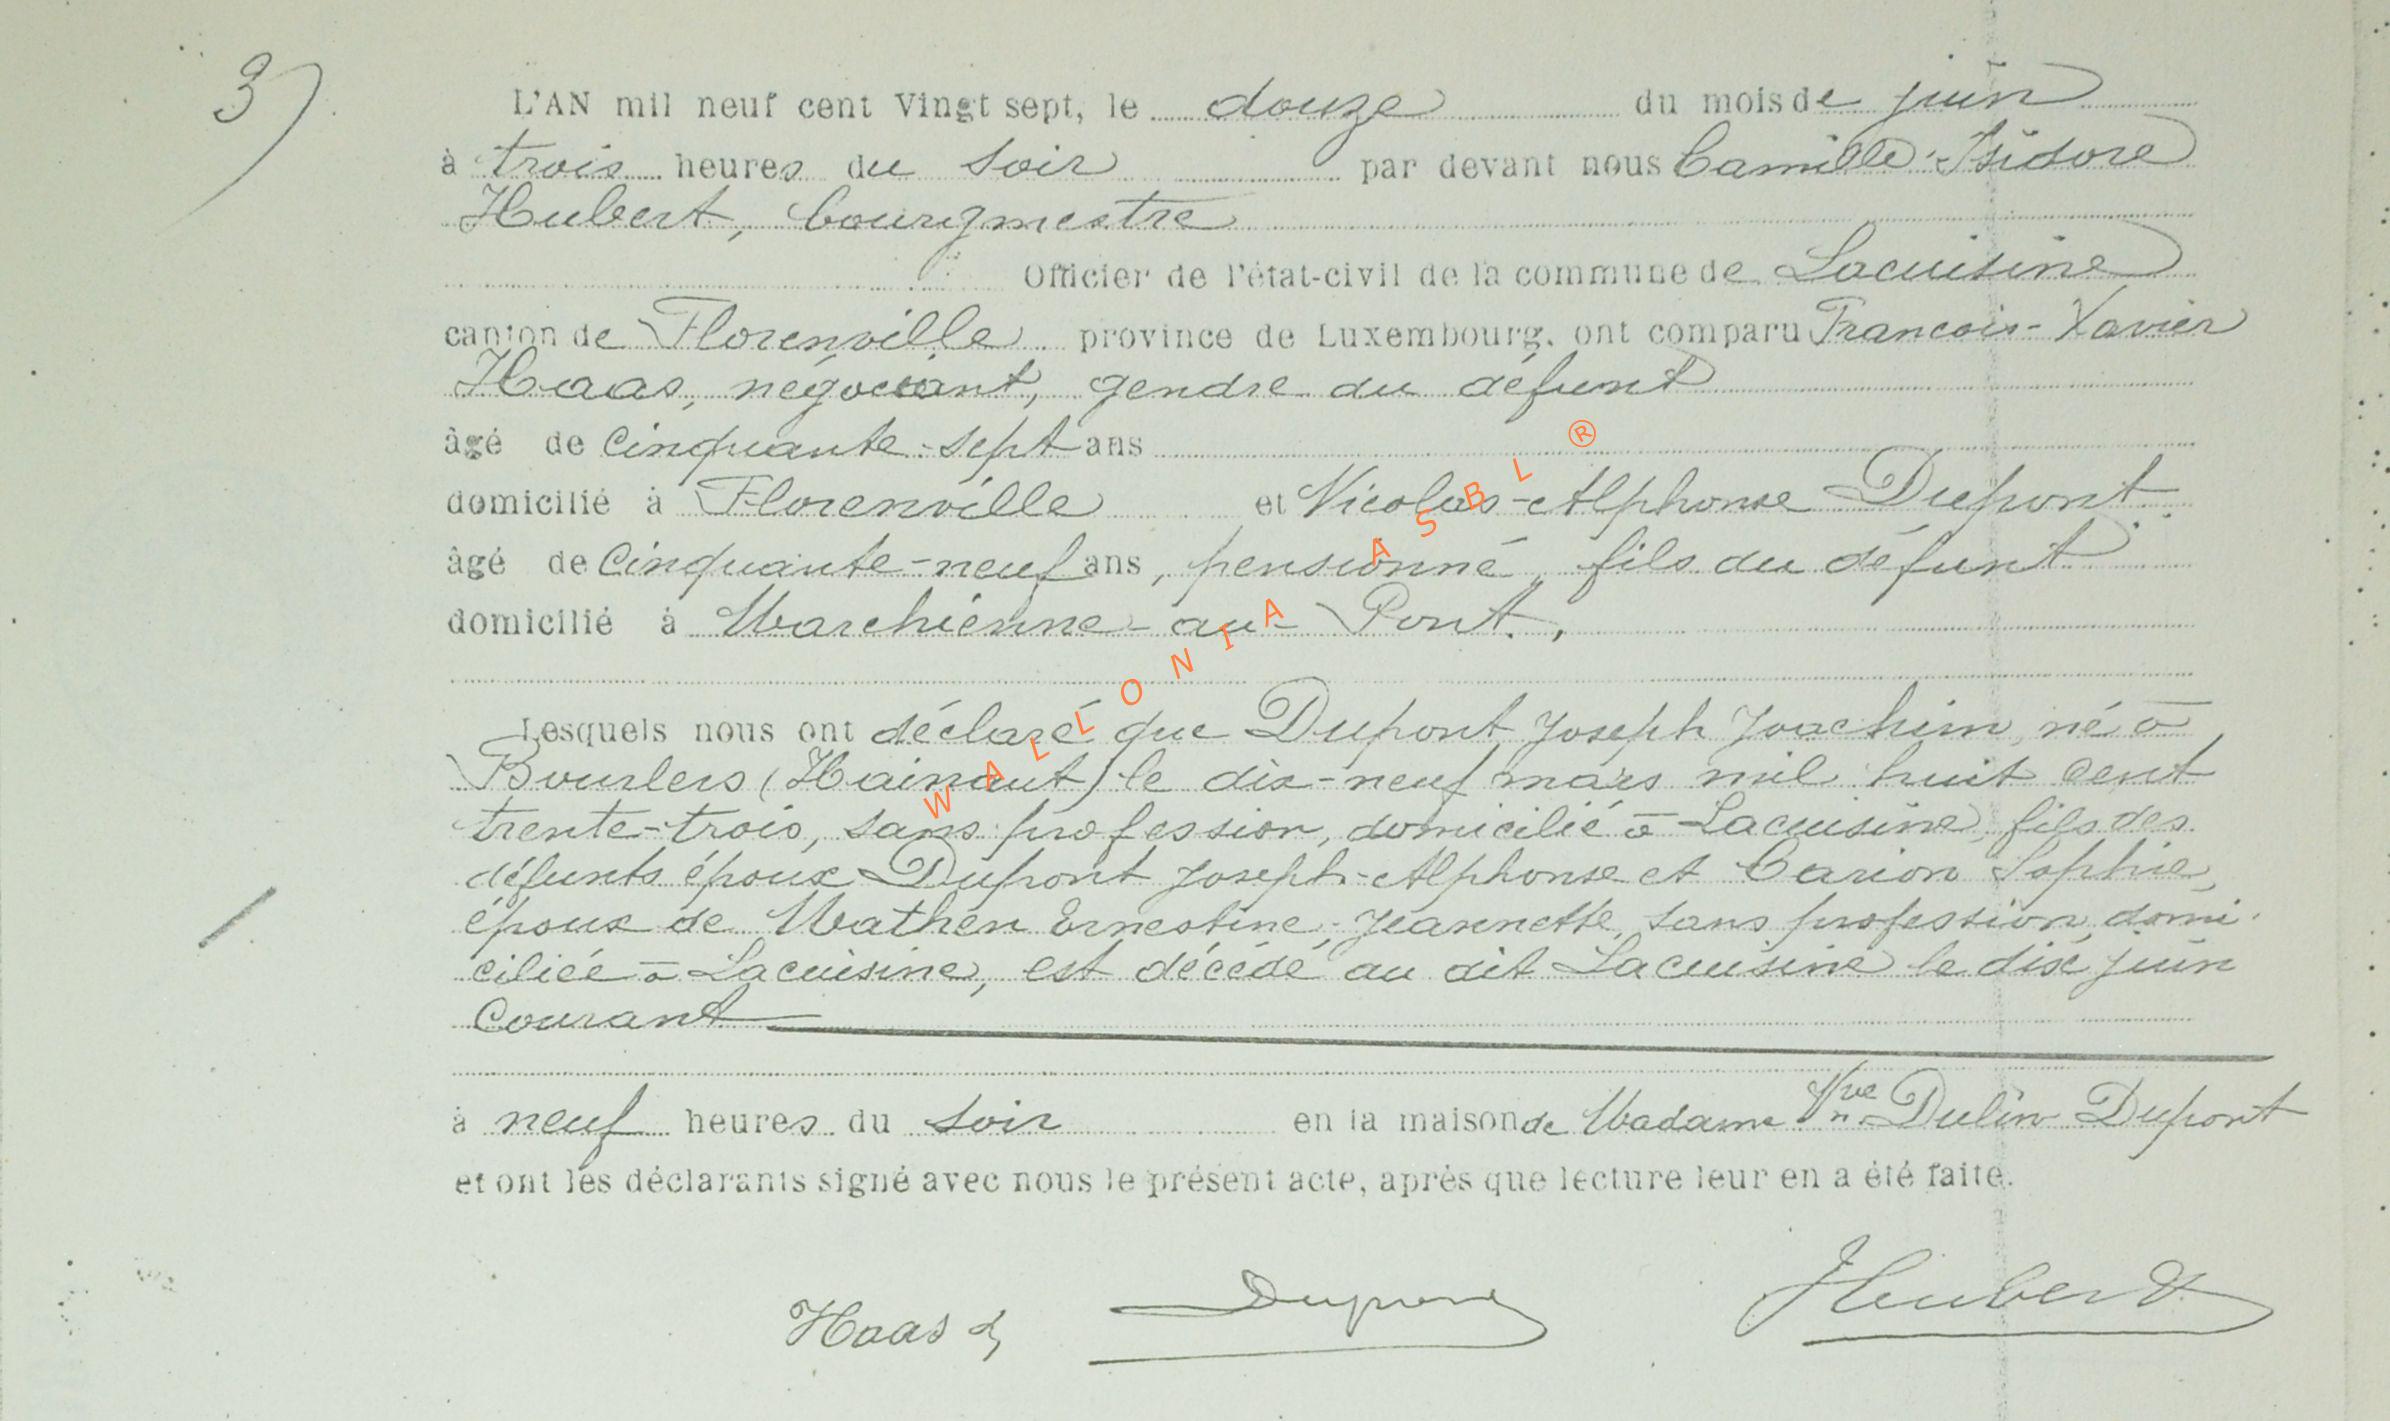 3)
L'AN mil neuf cent Vingt sept, le douze du mois de juin
à trois heures du soir par devant nous Camille-Isidore
Hubert, bourgmestre
Officier de l'état-civil de la commune de Lacuisine
canton de Florenville province de Luxembourg, ont comparu Francois-Xavier
Haas, négociant, gendre du défunt
âgé de cinquante-sept ans
domicilié à Florenville et Nicolas-Alphonse Dupont
âgé de cinquante-neuf ans, pensionné, fils du défunt
domicilié à Marchienne-au-Pont,
Lesquels nous ont déclaré que Dupont Joseph Joachim, né à
Bourlers (Hainaut) le dix-neuf mars mil huit cent
trente-trois, sans profession, domicilié à Lacuisine, fils des
défunts époux Dupont Joseph-Alphonse et Carion Sophie,
époux de Mathen Ernestine-Jeannette, sans profession, domi
ciliée à Lacuisine, est décédé au dit Lacuisine le dix juin
courant
à neuf heures du soir en la maison de Madame Vve Dulin Dupont
et ont les déclarants signé avec nous le présent acte, après que lecture leur en a été faite.
Haas Dupont Hubert
WALLONIA ASBL ®